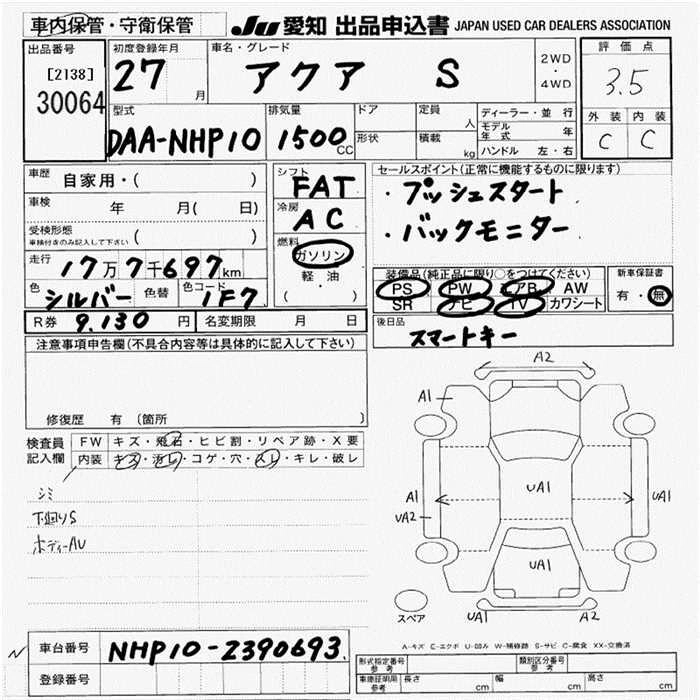 車内保管・守衛保管
JU 愛知 出品申込書 JAPAN USED CAR DEALERS ASSOCIATION
出品番号
[2138]
30064
初度登録年月
27 月
車名・グレード
アクア S
2WD
・
4WD
評価点
3.5
外装 内装
C C
型式
DAA-NHP10
排気量
1500 CC
ドア
形状
定員 人
積載 kg
ディーラー・並行
モデル年式 年
ハンドル 左・右
車歴 自家用・( )
車検 年 月( 日)
受検形態
車検付きのみ記入して下さい ( )
走行 17万7千697km
色 シルバー 色替 色コード 1F7
R券 9.130 円 名変期限 月 日
シフト
FAT
冷房
AC
燃料
ガソリン
軽・油
( )
セールスポイント(正常に機能するものに限ります)
・プッシュスタート
・バックモニター
装備品(純正品に限り○をつけてください)
PS PW エアB AW
SR ナビ TV カワシート
新車保証書
有・無
後日品
スマートキー
注意事項申告欄(不具合内容等は具体的に記入して下さい)
修復歴 有 (箇所 )
検査員
記入欄
FW キズ・飛石・ヒビ割・リペア跡・X要
内装 キズ・汚レ・コゲ・穴・スレ・キレ・破レ
シミ
下回りS
ボディーAU
A2
A1
A1
UA2
UA1
UA1
UA1
UA1
A2
スペア
A-キズ E-エクボ U-凹み W-補修跡 S-サビ C-腐食 XX-交換済
N
車台番号 NHP10-2390693
登録番号
型式指定番号
参考
類別区分番号
参考
車庫証明用
参考
長さ cm 幅 cm 高さ cm